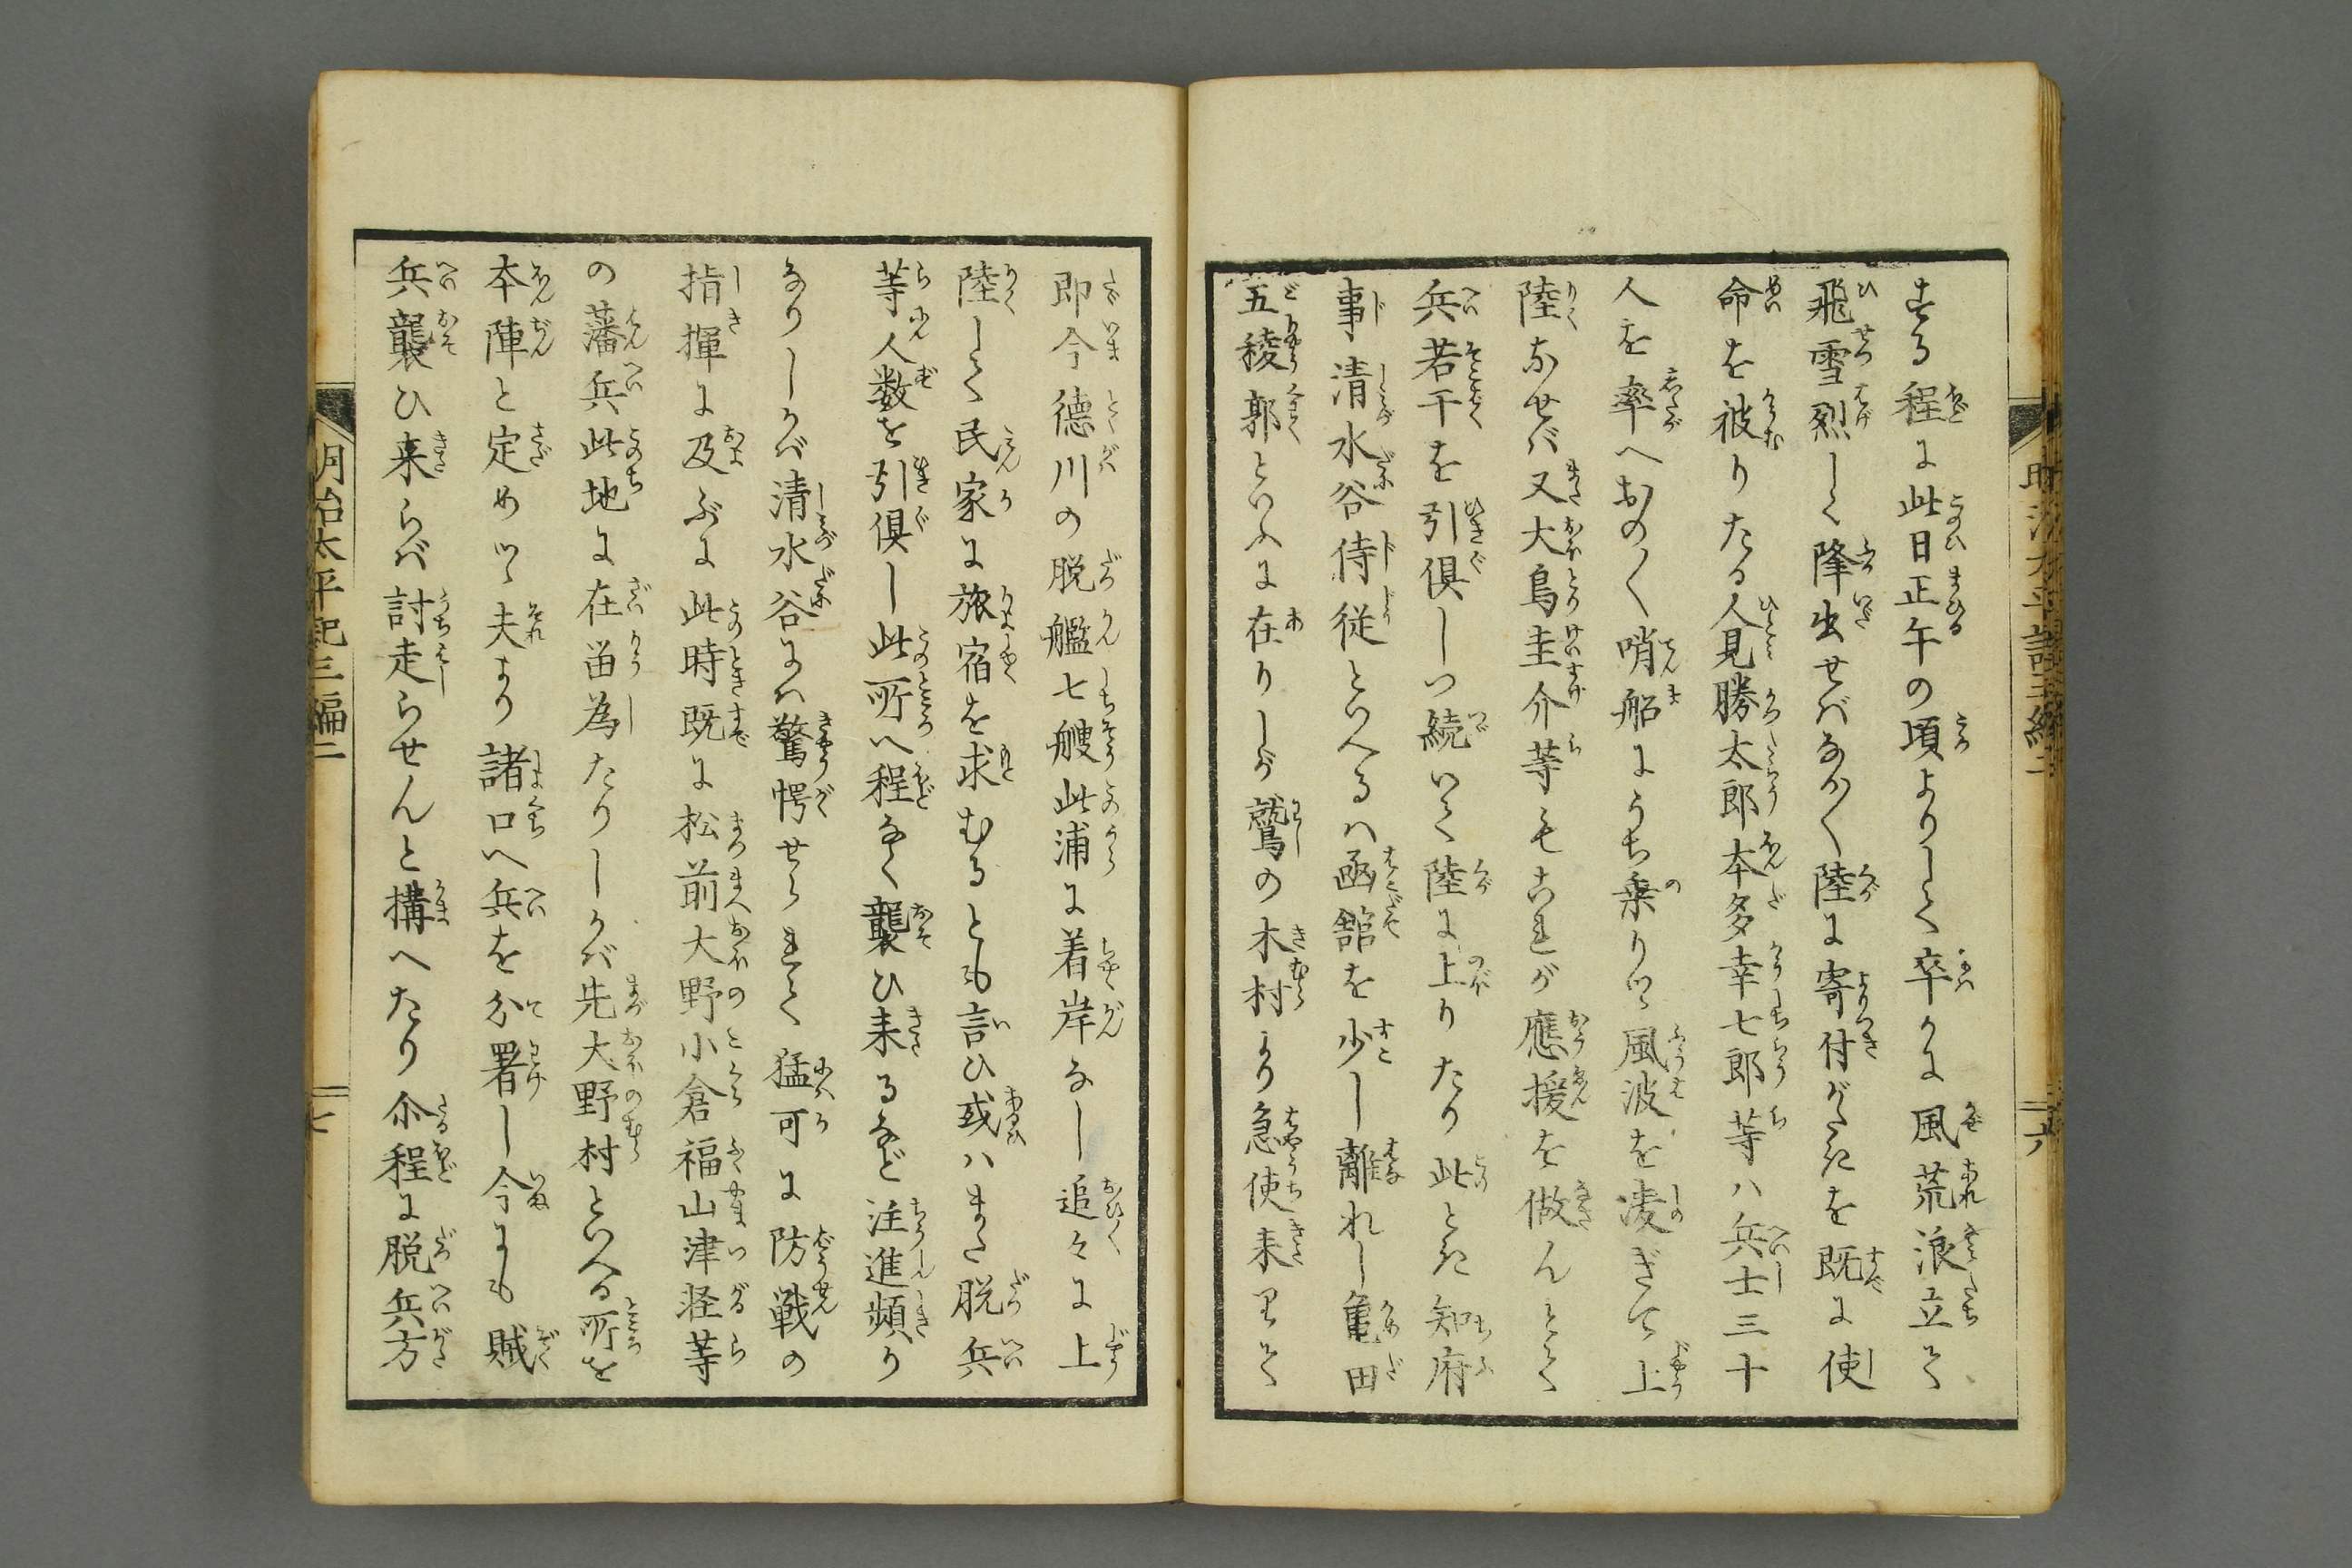 する程に此日正午の頃よりして卒かに風荒浪立て
飛雪烈しく降出せばなか〳〵陸に寄付がたきを既に使
命を被りたる人見勝太郎本多幸七郎等ハ兵士三十
人を率へおの〳〵哨船にうち乗りツヽ風波を凌ぎて上
陸なせバ又大鳥圭介等もこれが應援を做んとて
兵若干を引倶しつ続いて陸に上りたり此とき知府
事清水谷侍従といへるハ函館を少し離れし亀田
五稜郭といふに在りしが鷲の木村より急使来りて
即今徳川の脱艦七艘此浦に着岸なし追々に上
陸して民家に旅宿を求むるとも言ひ或ハまた脱兵
等人数を引倶し此所へ程なく襲ひ来るなど注進頻り
なりしかバ清水谷にハ驚愕せられて猛可に防戦の
指揮に及ぶに此時既に松前大野小倉福山津軽等
の藩兵此地に在留為たりしかバ先大野村といへる所を
本陣と定めツヽ夫より諸口へ兵を分署し今にも賊
兵襲ひ来らバ討走らせんと構へたり尒程に脱兵方
明治太平記三編二
七